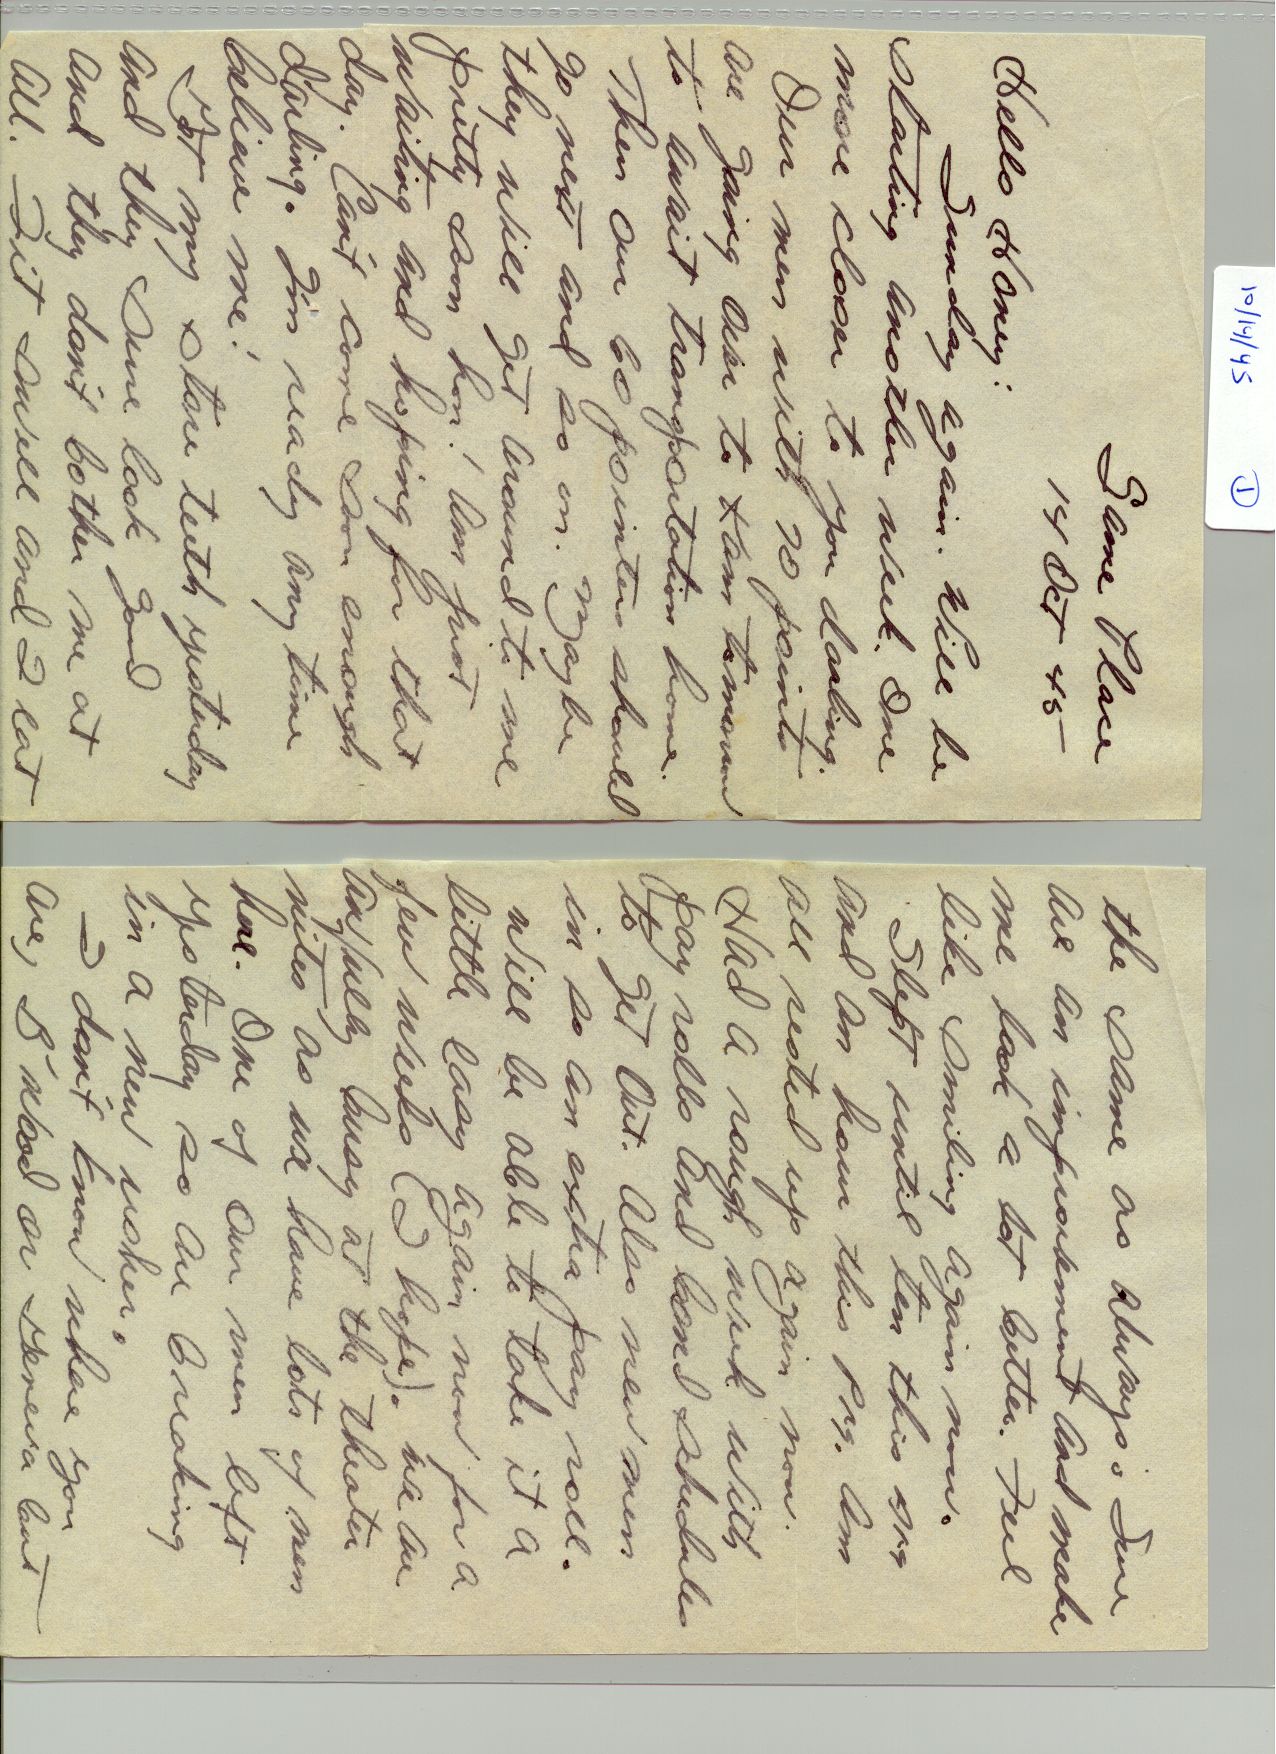 10/14/45 1
Same Place
14 Oct 45
Hello Honey:
Sunday again. Will be
starting another week. One
more closer to you darling.
Our men with 70 points
are going over to tomorrow
to await transportation home.
Then our 60 pointers should
go next and so on. Maybe
they will get around to me
pretty soon hon! Am just
waiting and hoping for that
day. Can't come soon enough
darling. I'm ready any time
believe me!
Got my store teeth yesterday
and they sure look good
and they don't bother me at
all. Fit swell and I eat
the same as always. Sure
are an improvement and make
me look a lot better. Feel
like smiling again now.
Slept until ten this mrg
and an hour this Mrg. Am
all rested up again now.
Had a rough week with
pay rolls and bond schedules
to get out. Also new men
in so an extra pay roll.
Will be able to take it a
little easy again now for a
few weeks (I hope). We are
awfully busy at the theater
nites as we have lots of men
here. One of our men left
yesterday so am breaking
in a new usher.
I don't know where you
are, B'wood or Geneva but